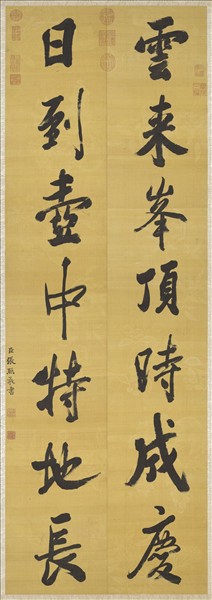 雲来峯頂時成慶
日到壺中特地長
臣張照敬書